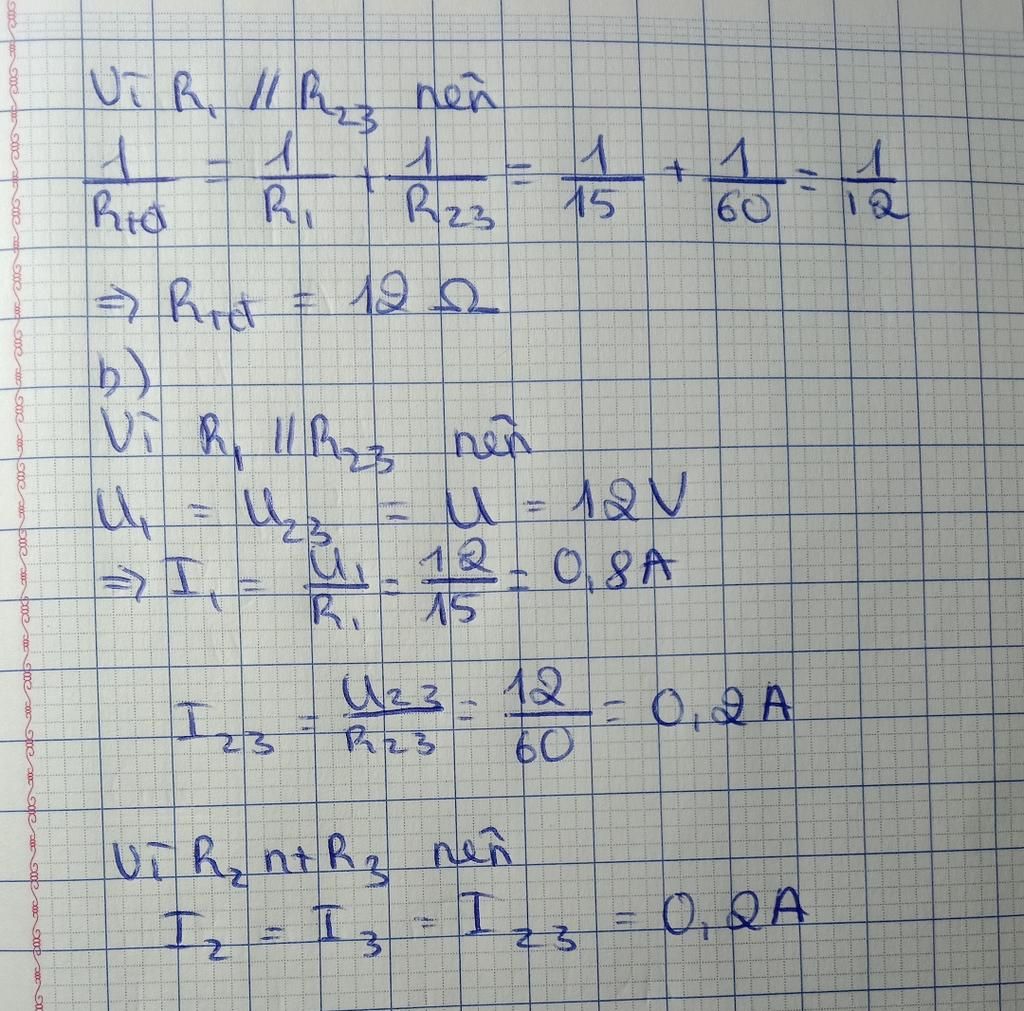 Vì R₁ // R₂₃ nên
1/Rtđ = 1/R₁ + 1/R₂₃ = 1/15 + 1/60 = 1/12
=> Rtđ = 12 Ω
b)
Vì R₁ // R₂₃ nên
U₁ = U₂₃ = U = 12V
=> I₁ = U₁/R₁ = 12/15 = 0,8A
I₂₃ = U₂₃/R₂₃ = 12/60 = 0,2A
Vì R₂ nt R₃ nên
I₂ = I₃ = I₂₃ = 0,2A